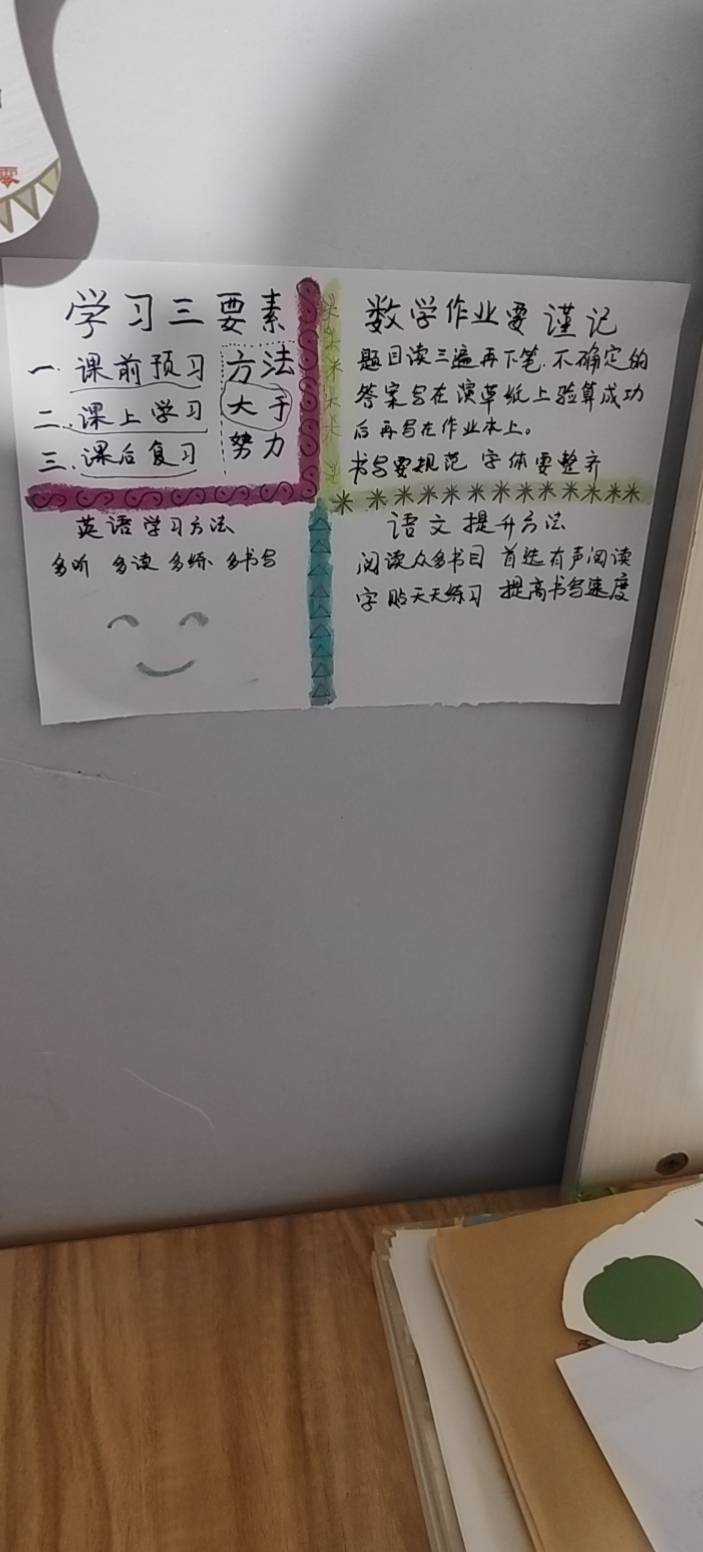 学习三要素
一.课前预习
二.课上学习
三.课后复习
方法
大于
努力
数学作业要谨记
题目读三遍再下笔.不确定的
答案写在演草纸上验算成功
后再写在作业本上。
书写要规范 字体要整齐
英语学习方法
多听 多读 多练 多书写
语文提升方法
阅读众多书目 首选有声阅读
字贴天天练习 提高书写速度